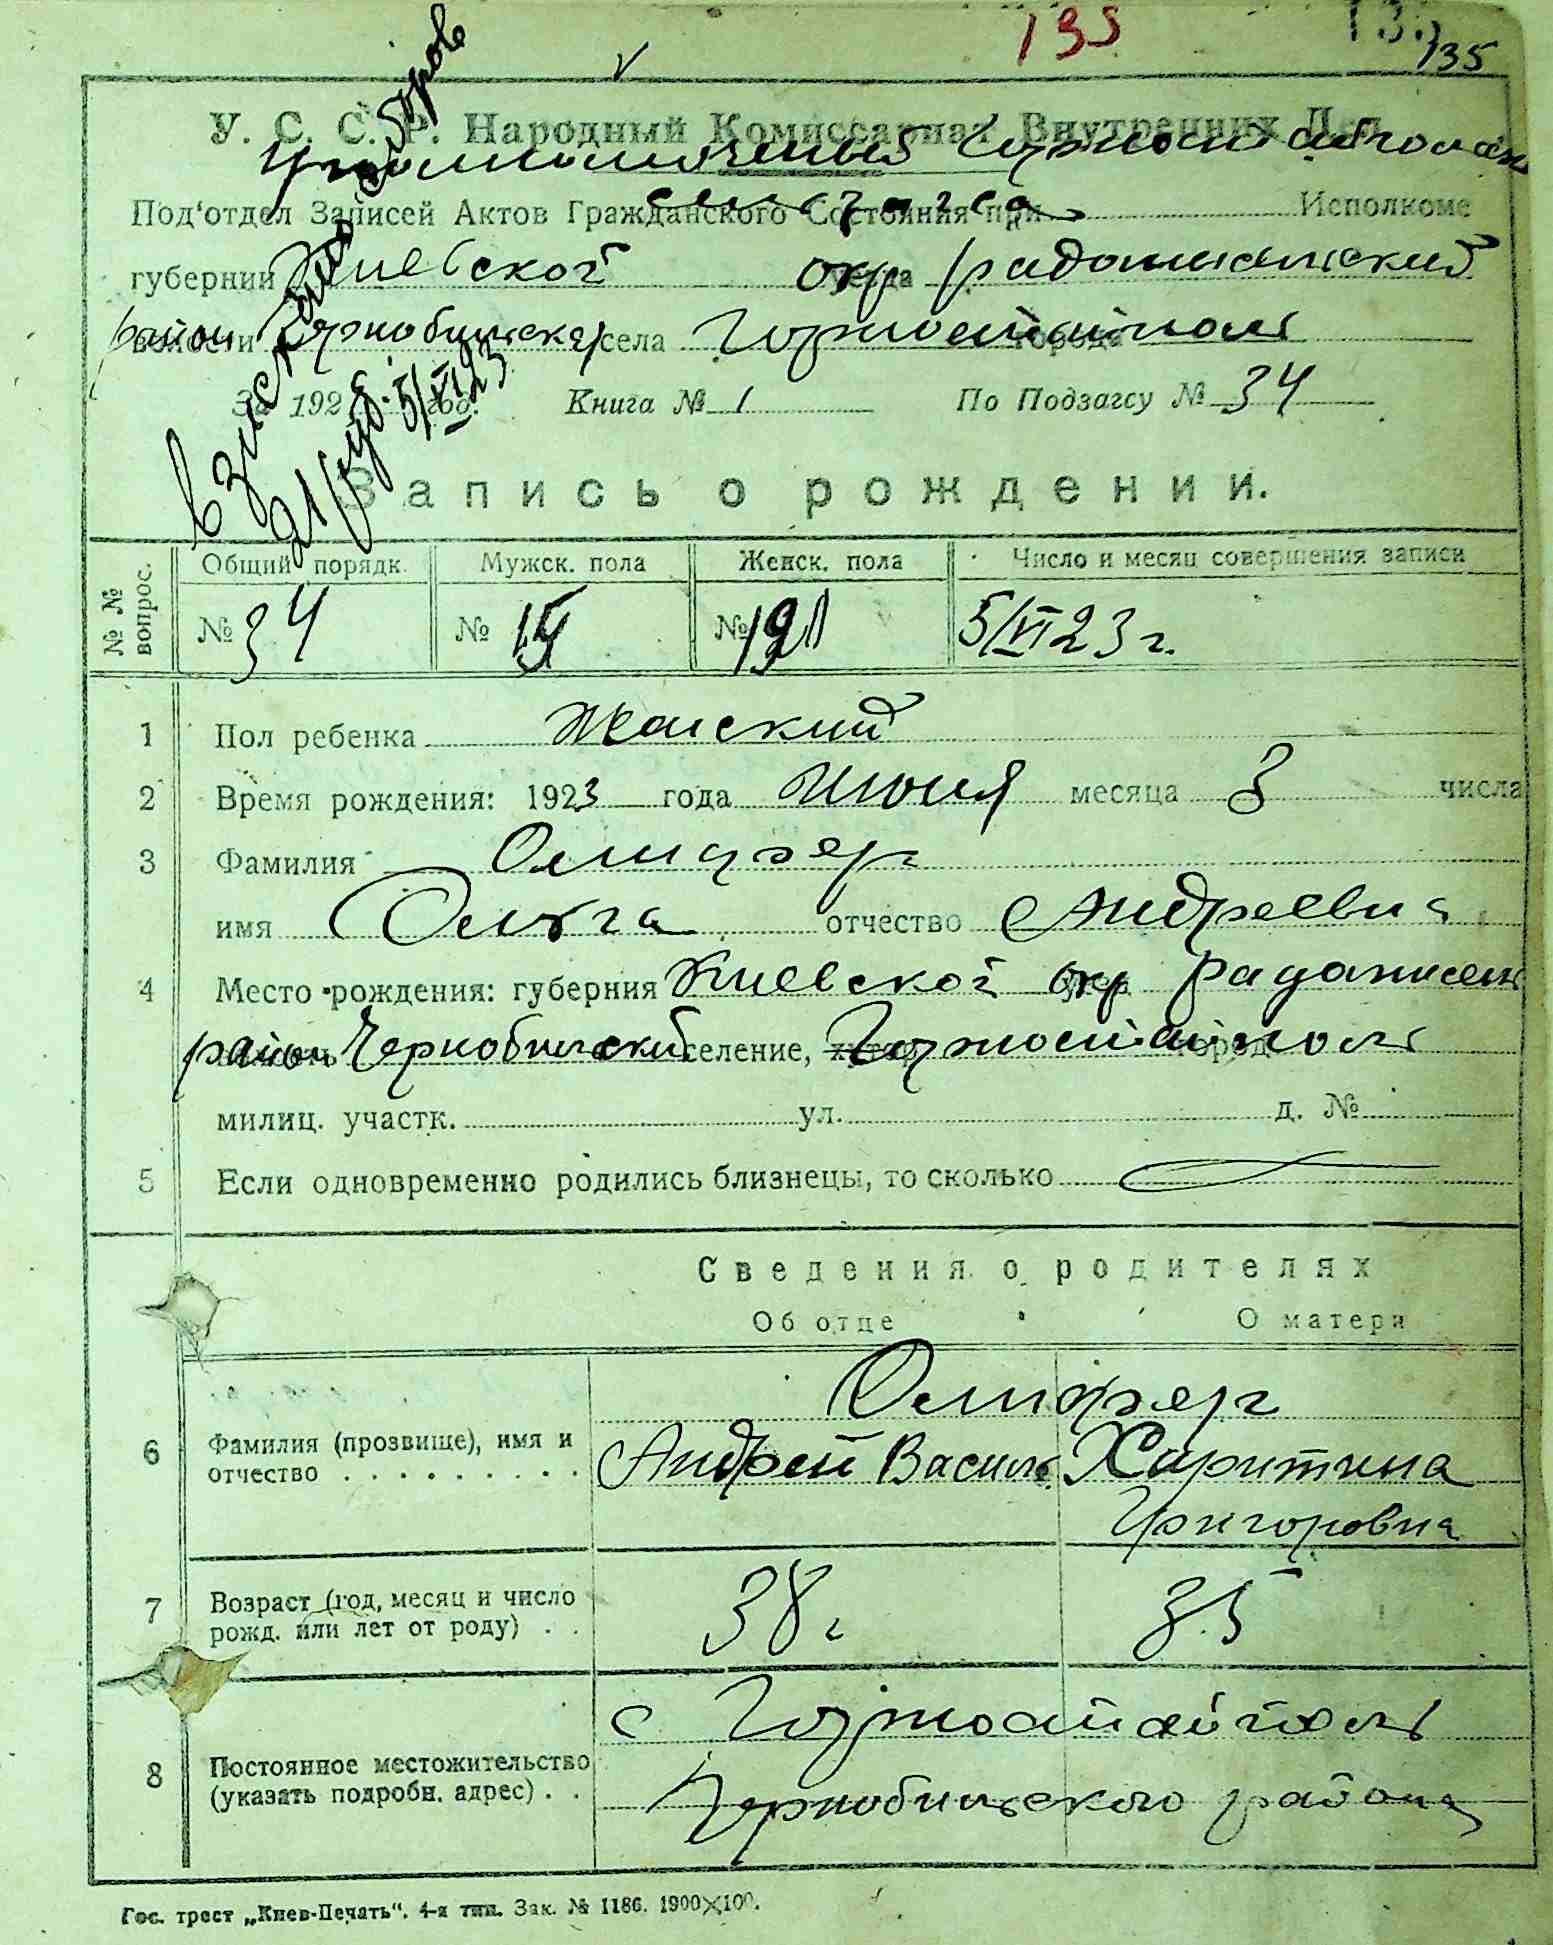 135
135
У. С. С. Р. Народный Комиссариат Внутренних Дел
Под'отдел Записей Актов Гражданского Состояния при Исполкоме
губернии Киевской окр
района Чернобильскаго села Горностайполь
За 192 год. Книга № 1 По Подзагсу № 34
21 руб. 5/VI 23
Запись о рождении.
№ № вопрос. Общий порядк. Мужск. пола Женск. пола Число и месяц совершения записи
№ 34 № 15 № 5/VI 23 г.
1 Пол ребенка Женский
2 Время рождения: 1923 года Июня месяца 3 числа
3 Фамилия Олифер
имя Ольга отчество Андреевна
4 Место рождения: губерния Киевской окр
район Чернобильский селение, Горностайполь
милиц. участк. ул. д. №
5 Если одновременно родились близнецы, то сколько
Сведения о родителях
Об отце О матери
Олифер
6 Фамилия (прозвище), имя и отчество Андрей Василь. Харитина
Григоровна
7 Возраст (год, месяц и число рожд. или лет от роду) 38 г. 35
с Горностайполь
8 Постоянное местожительство (указать подробн. адрес) Чернобильского района
Гос. трест „Киев-Печать". 4-я тип. Зак. № 1186. 1900×100.